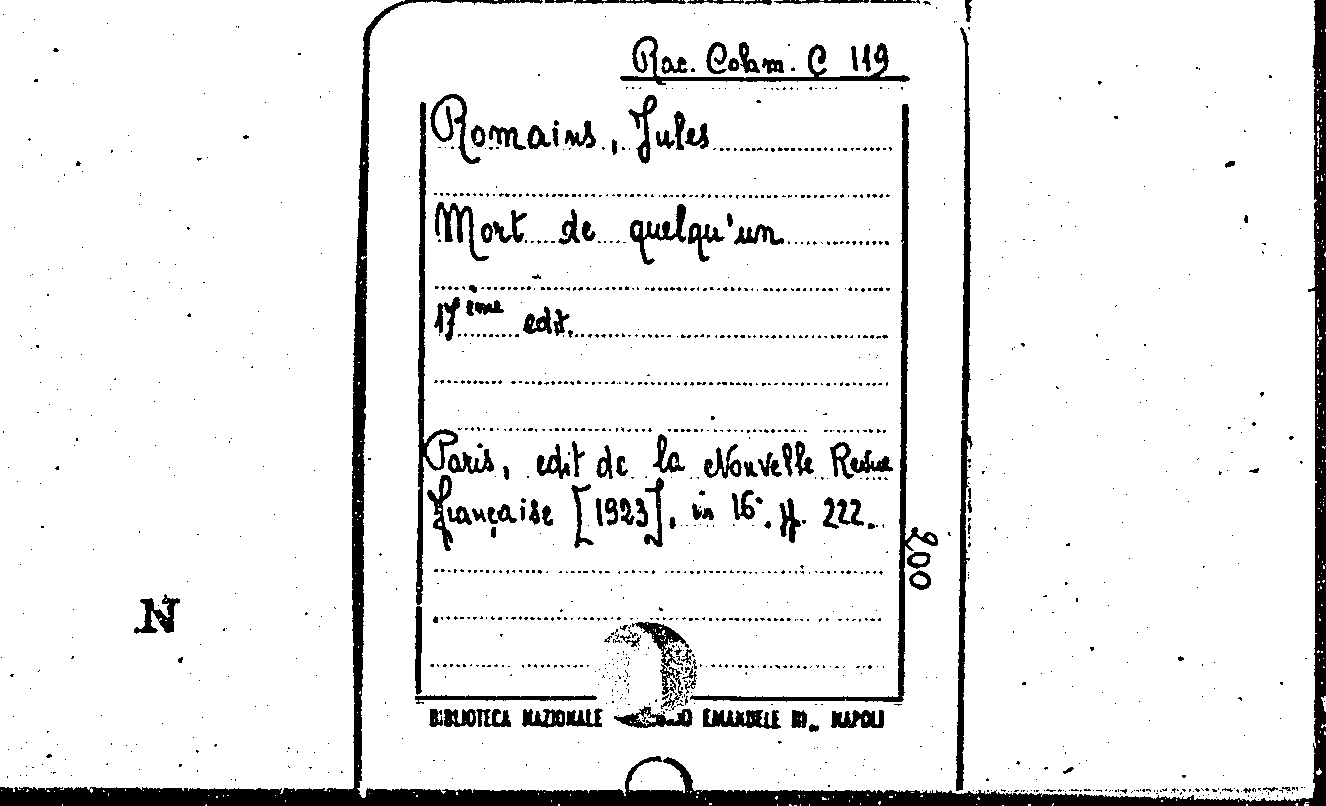 Rac. Colam. C 119
Romains, Jules
Mort de quelqu'un
17ème edit.
Paris, edit de la Nouvelle Revue
française [1923], in 16°. pp. 222.
200
N
BIBLIOTECA NAZIONALE EMANUELE III„ NAPOLI